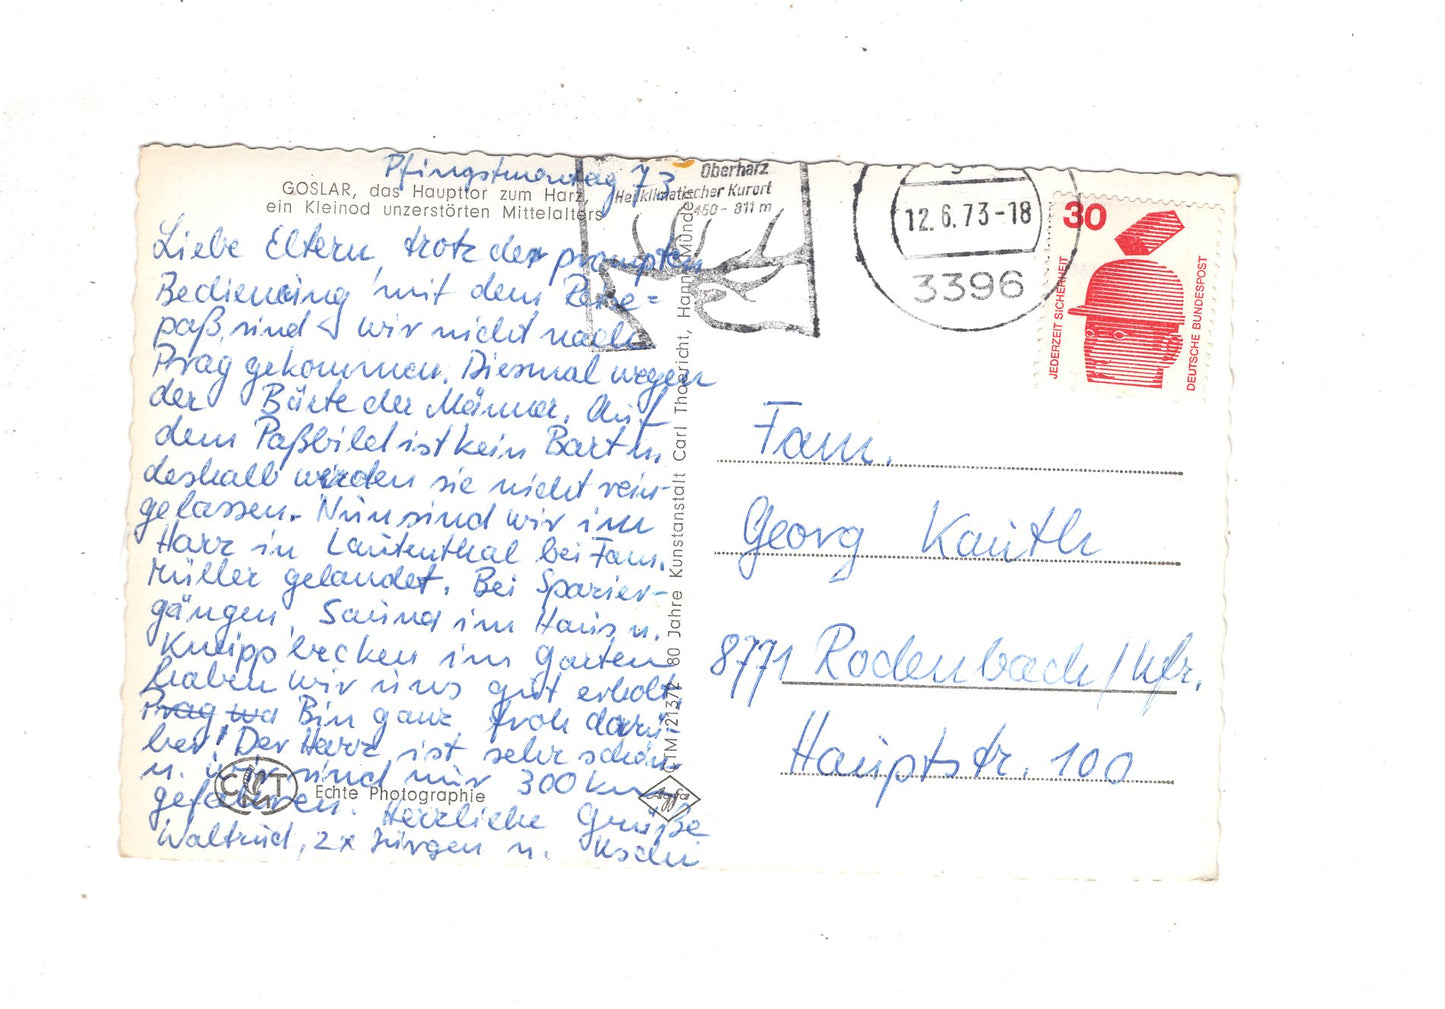 Pfingstmontag 73
GOSLAR, das Haupttor zum Harz,
ein Kleinod unzerstörten Mittelalters
Liebe Eltern, trotz der prompten
Bedienung mit dem Reise=
paß, sind wir nicht nach
Prag gekommen. Diesmal wegen
der Bärte der Männer. Auf
dem Paßbild ist kein Bart u.
deshalb werden sie nicht rein-
gelassen. Nun sind wir im
Harz in Lautenthal bei Fam.
Müller gelandet. Bei Spazier-
gängen, Sauna im Haus u.
Kneippbecken im Garten
haben wir uns gut erholt.
Prag wa Bin ganz froh darü-
ber! Der Harz ist sehr schön
u. wir sind nur 300 km
gefahren. Herzliche Grüße
Waltrud, 2x Jürgen u.
CM T
Echte Photographie
Agfa
CTM 21372 80 Jahre Kunstanstalt Carl Thoericht, Hann. Münden
Oberharz
Heilklimatischer Kurort
450 - 811 m
12.6.73-18
3396
30
JEDERZEIT SICHERHEIT
DEUTSCHE BUNDESPOST
Fam.
Georg Kauth
8771 Rodenbach/Ufr.
Hauptstr. 100